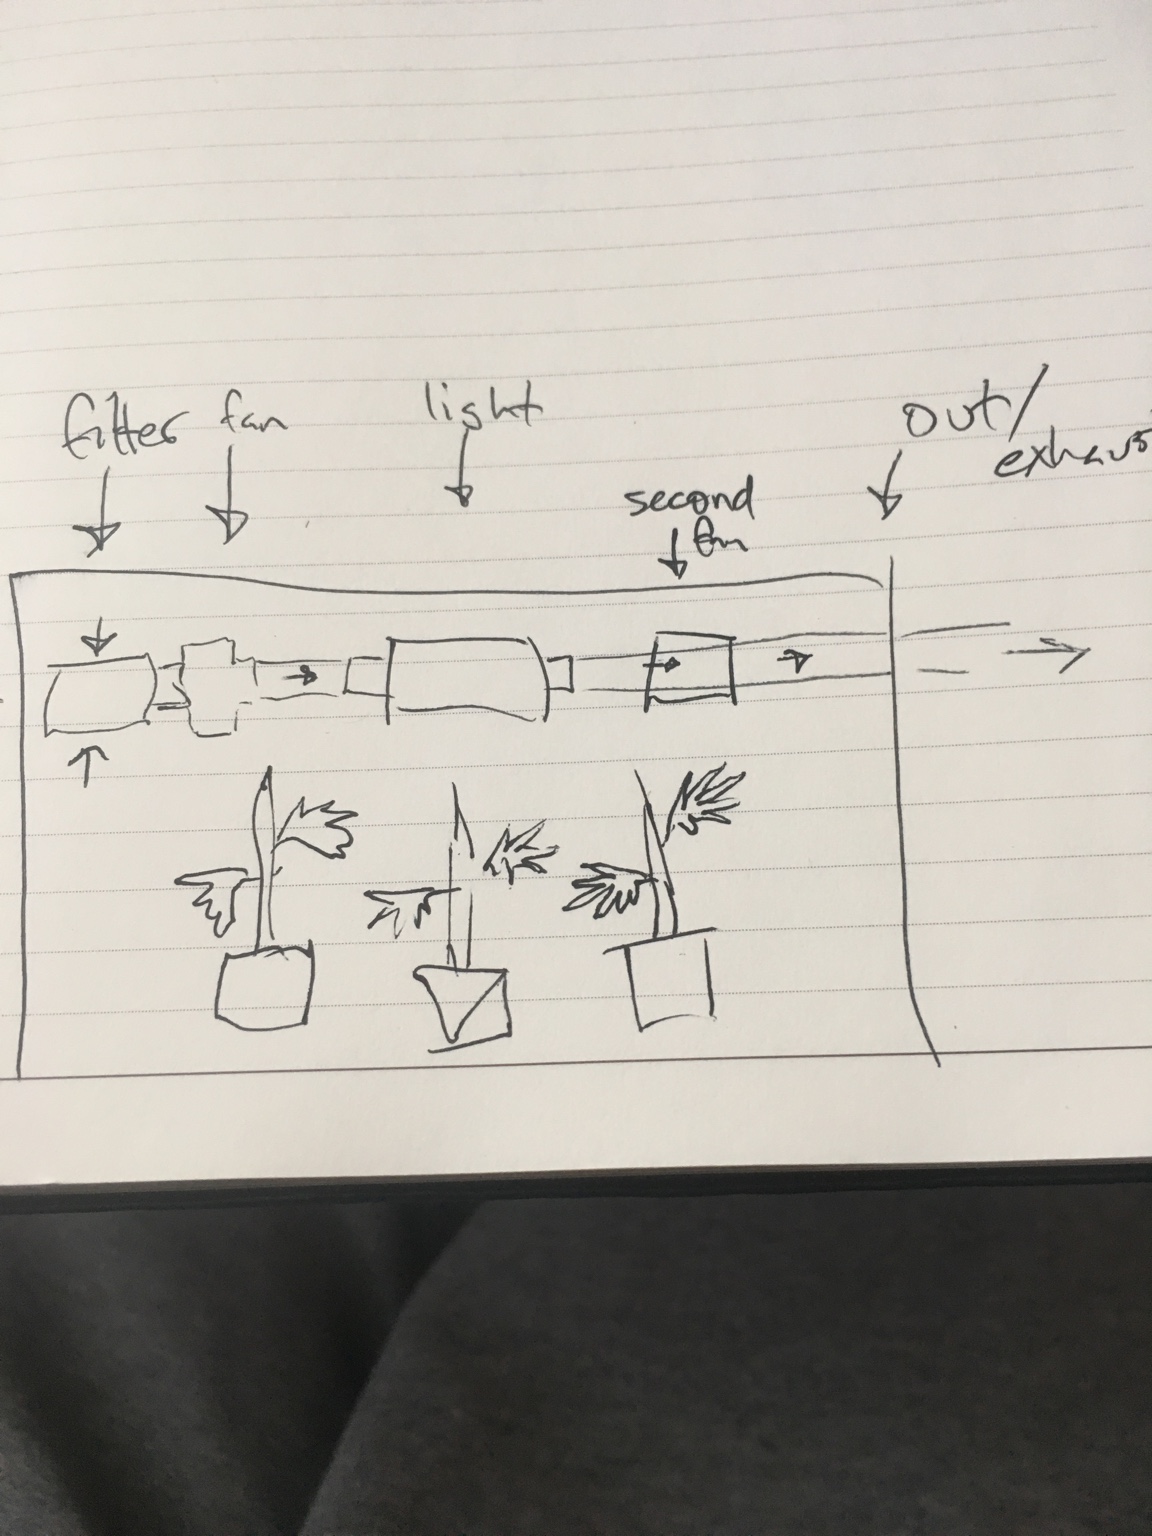 filter fan
light
out/
exhaus
second
fan